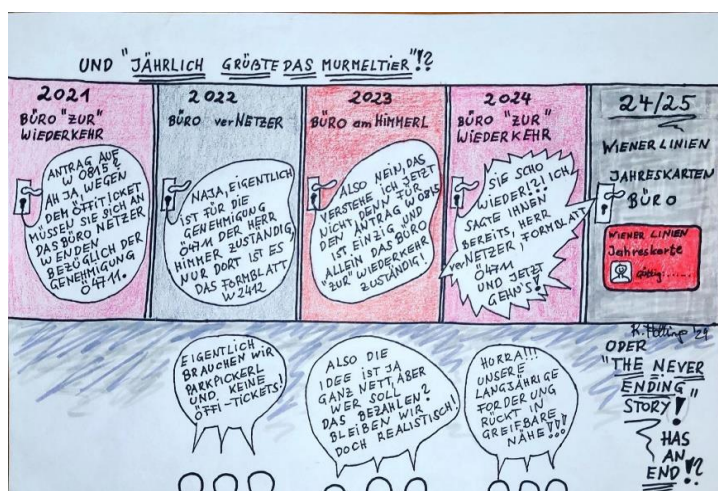 UND "JÄHRLICH GRÜßTE DAS MURMELTIER"!?
2021
BÜRO "ZUR"
WIEDERKEHR
ANTRAG AUF
W 0815 ?
AH JA, WEGEN
DEM ÖFFITICKET
MÜSSEN SIE SICH AN
DAS BÜRO NETZER
WENDEN
BEZÜGLICH DER
GENEHMIGUNG
Ö 4711.
2022
BÜRO verNETZER
NAJA, EIGENTLICH
IST FÜR DIE
GENEHMIGUNG
Ö4711 DER HERR
HIMMER ZUSTÄNDIG,
NUR DORT IST ES,
DAS FORMBLATT
W 2412
2023
BÜRO am HIMMERL
ALSO NEIN, DAS
VERSTEHE ICH JETZT
NICHT, DENN FÜR
DEN ANTRAG W 0815
IST EINZIG UND
ALLEIN DAS BÜRO
"ZUR" WIEDERKEHR
ZUSTÄNDIG!
2024
BÜRO "ZUR"
WIEDERKEHR
SIE SCHO
WIEDER!?! ICH
SAGTE IHNEN
BEREITS, HERR
verNETZER, FORMBLATT
Ö4711
UND JETZT
GEHN'S!
24/25
WIENER LINIEN
JAHRESKARTEN
BÜRO
WIENER LINIEN
Jahreskarte
Gültig:......
EIGENTLICH
BRAUCHEN WIR
PARKPICKERL
UND KEINE
ÖFFI-TICKETS!
ALSO DIE
IDEE IST JA
GANZ NETT, ABER
WER SOLL
DAS BEZAHLEN?
BLEIBEN WIR
DOCH REALISTISCH!
HURRA!!!
UNSERE
LANGJÄHRIGE
FORDERUNG
RÜCKT IN
GREIFBARE
NÄHE!!!
ODER
"THE NEVER
ENDING"
STORY!
HAS
AN
END!?